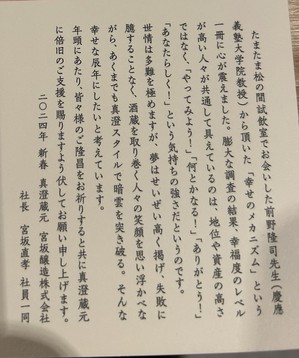 たまたま松の間試飲室でお会いした前野隆司先生（慶應
義塾大学院教授）から頂いた「幸せのメカニズム」という
一冊に心が震えました。膨大な調査の結果、幸福度のレベル
が高い人々が共通して具えているのは、地位や資産の高さ
ではなく、「やってみよう！」「何とかなる！」「ありがとう！」
「あなたらしく！」という気持ちの強さだというのです。
世情は多難を極めますが、夢はせいぜい高く掲げ、失敗に
臆することなく、酒蔵を取り巻く人々の笑顔を思い浮かべな
がら、あくまでも真澄スタイルで暗雲を突き破る。そんな
幸せな辰年にしたいと考えています。
年頭にあたり、皆々様のご隆昌をお祈りすると共に真澄蔵元
に倍旧のご支援を賜りますよう伏してお願い申し上げます。
二〇二四年 新春 真澄蔵元 宮坂醸造株式会社
社長 宮坂直孝 社員一同